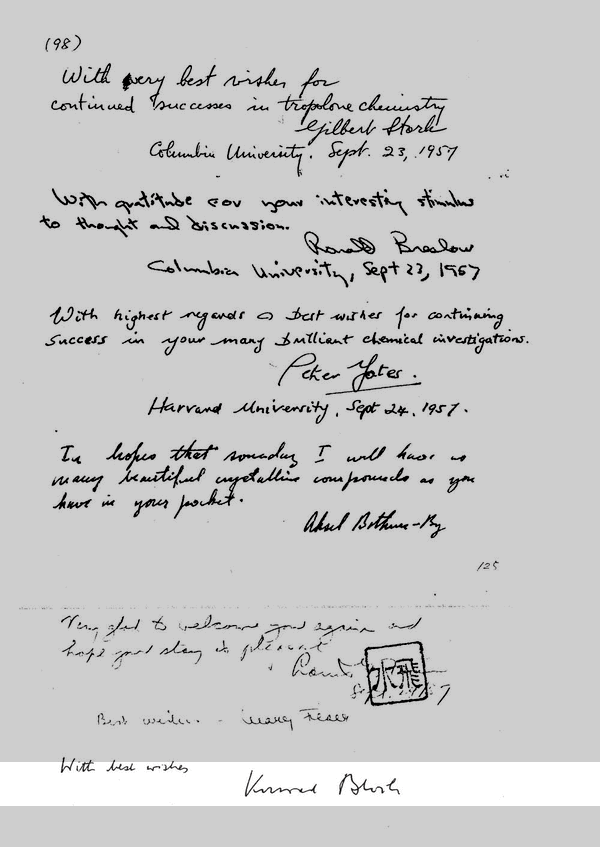 (98)
With very best wishes for
continued successes in tropolone chemistry
Gilbert Stork
Columbia University. Sept. 23, 1957
With gratitude for your interesting stimulus
to thought and discussion.
Ronald Breslow
Columbia University, Sept 23, 1957
With highest regards & best wishes for continuing
success in your many brilliant chemical investigations.
Peter Yates.
Harvard University, Sept 24, 1957.
In hopes that someday I will have as
many beautiful crystalline compounds as you
have in your pocket.
Aksel Bothner-By
125
Very glad to welcome you again and
hope your stay is pleasant
Best wishes - Mary Fieser
With best wishes
Konrad Bloch